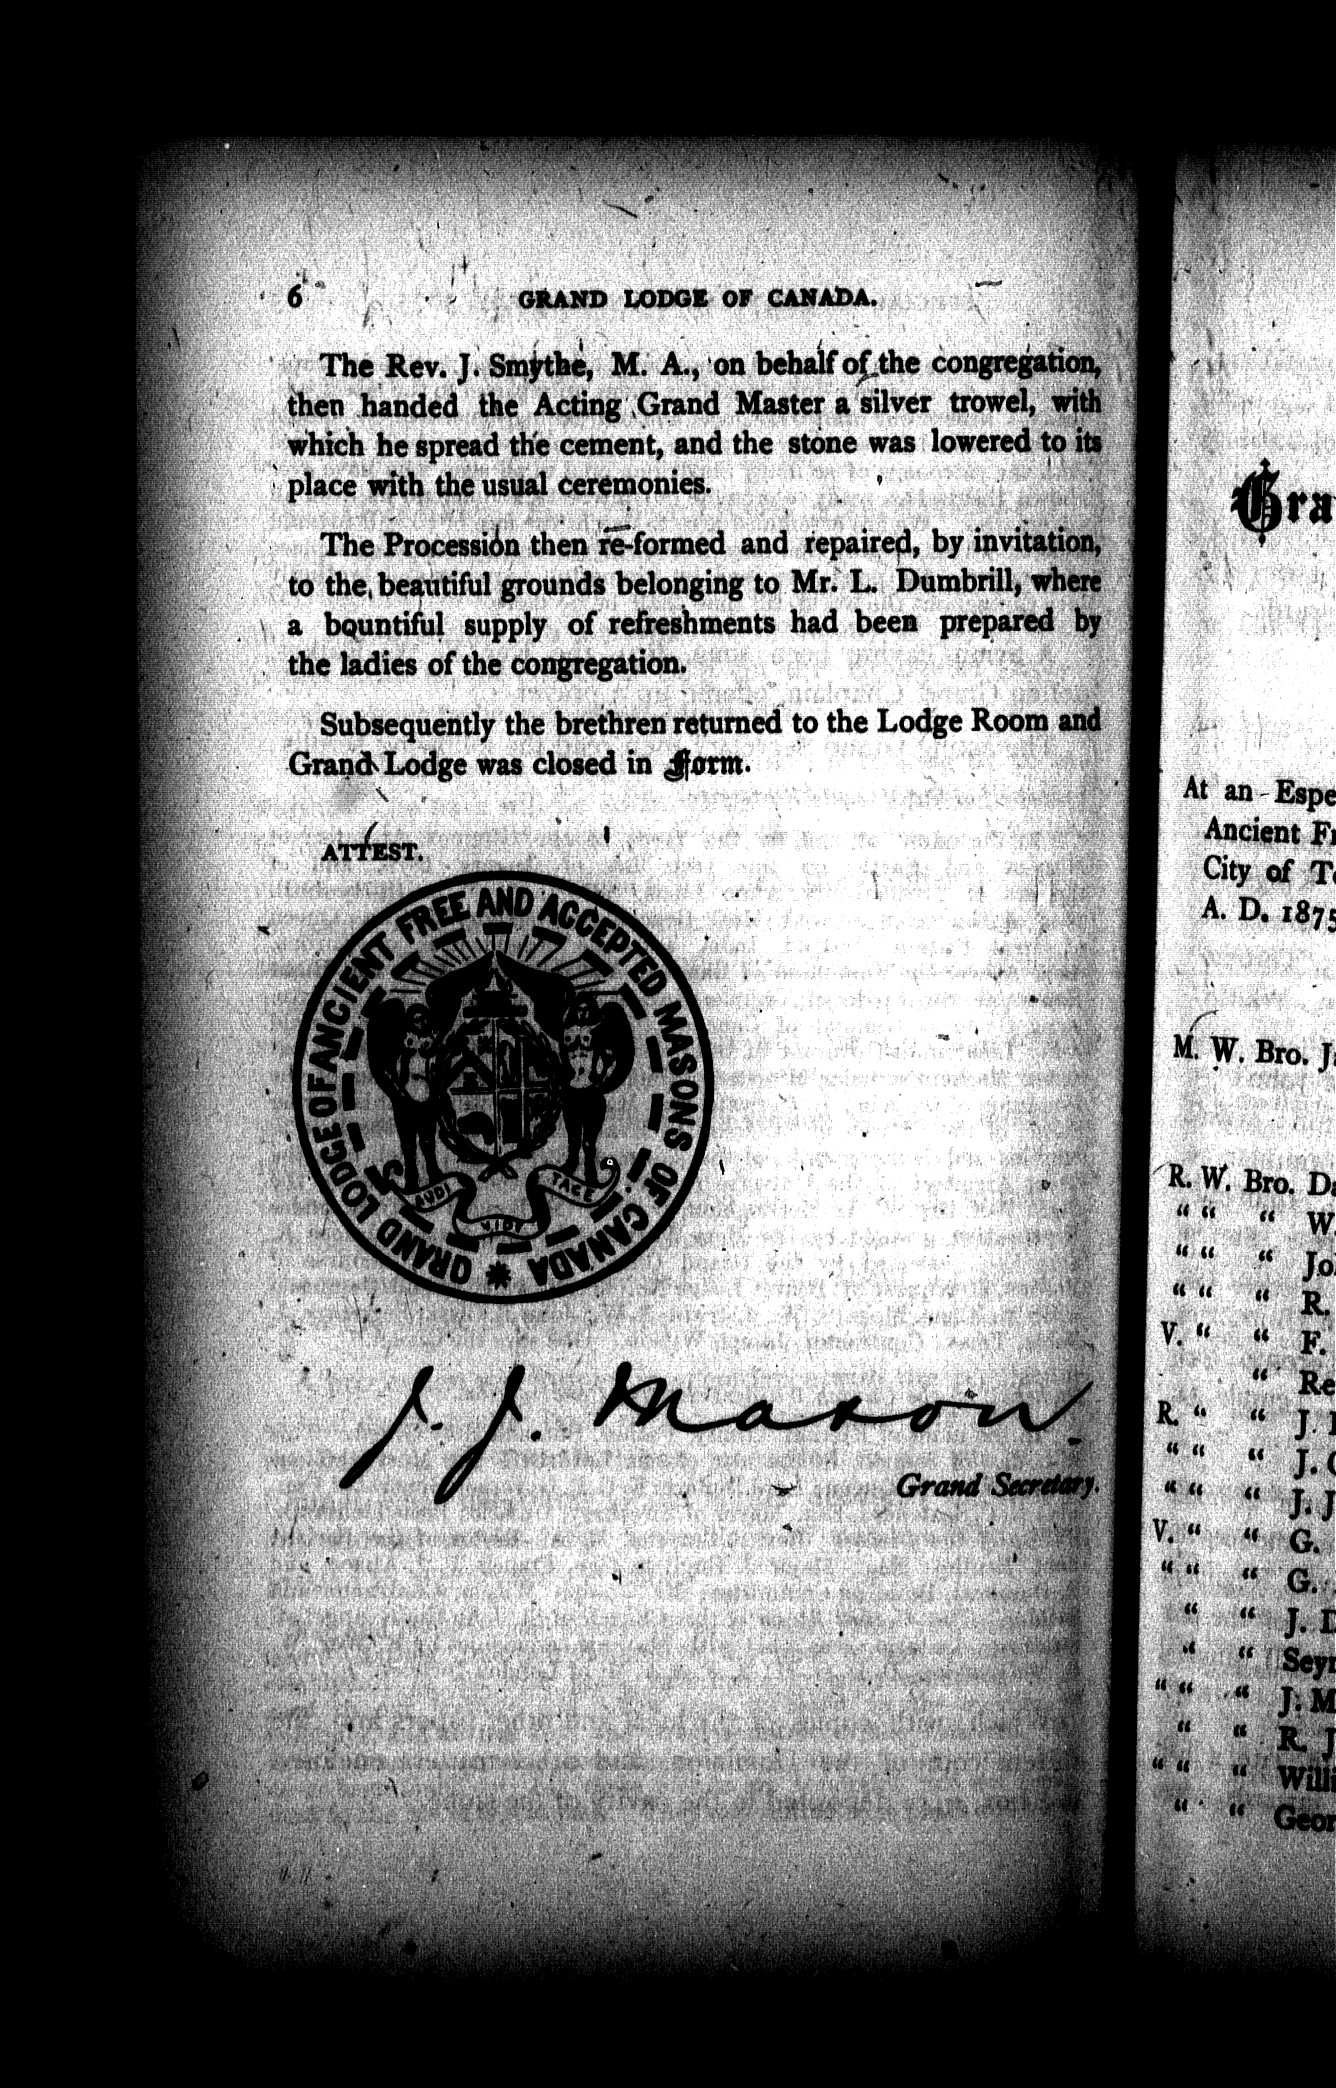 6 GRAND LODGE OF CANADA.
The Rev. J. Smythe, M. A., on behalf of the congregation,
then handed the Acting Grand Master a silver trowel, with
which he spread the cement, and the stone was lowered to its
place with the usual ceremonies.
The Procession then re-formed and repaired, by invitation,
to the beautiful grounds belonging to Mr. L. Dumbrill, where
a bountiful supply of refreshments had been prepared by
the ladies of the congregation.
Subsequently the brethren returned to the Lodge Room and
Grand Lodge was closed in Form.
ATTEST.
GRAND LODGE OF ANCIENT FREE AND ACCEPTED MASONS OF CANADA
AUDI VIDE TACE
J. J. Mason
Grand Secretary.
Gra
At an Espe
Ancient Fr
City of To
A. D. 1875
M. W. Bro. Ja
R. W. Bro. Da
" " " W.
" " " Jo
" " " R.
V. " " F.
" Re
R. " " J.
" " " J. C
" " " J. J
V. " " G.
" " " G.
" " J. D
" " Seyr
" " " J. M
" " R. J
" " " Willi
" " Geor